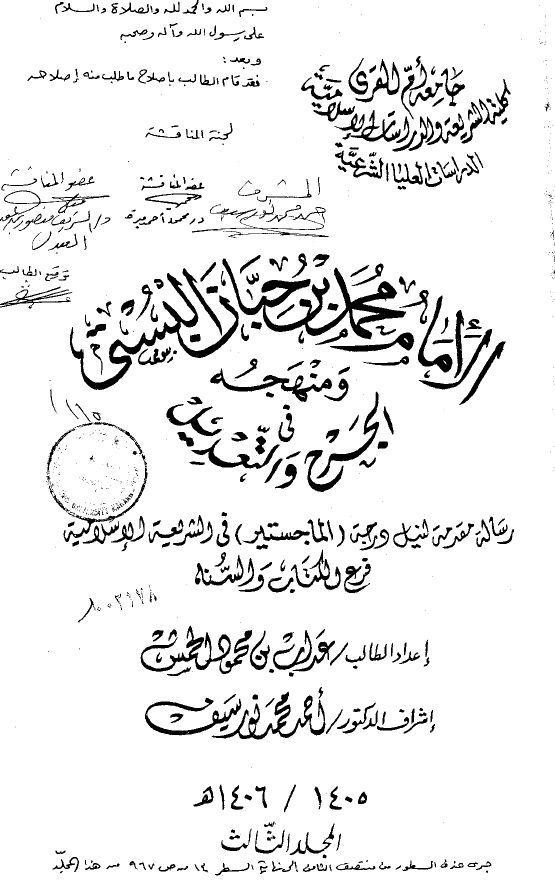 بسم الله والحمد لله والصلاة والسلام
على رسول الله وآله وصحبه
وبعد :
فقد قام الطالب بإصلاح ما طلب منه إصلاحه
لجنة المناقشة
جامعة أم القرى
كلية الشريعة والدراسات الإسلامية
الدراسات العليا الشرعية
المشرف
عضو المناقشة
عضو المناقشة
أحمد محمد نور سيف
د. محمود أحمد ميرة
توقيع الطالب
الإمام محمد بن حبان البستي
ومنهجه
في
الجرح والتعديل
رسالة مقدمة لنيل درجة (الماجستير) في الشريعة الإسلامية
فرع الكتاب والسنة
إعداد الطالب / عداب بن محمود الحمش
إشراف الدكتور / أحمد محمد نور سيف
١٤٠٥ / ١٤٠٦هـ
المجلد الثالث
جرى حذف السطور من منتصف الثامن إلى نهاية السطر ١٣ من ص ٩٦٧ من هذا المجلد